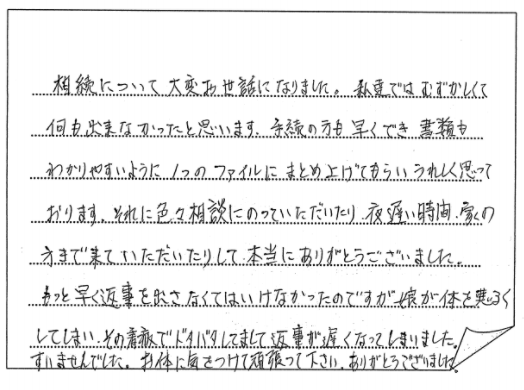 相続について大変お世話になりました。私達ではむずかしくて
何も出来なかったと思います。手続の方も早くでき 書類も
わかりやすいように1つのファイルにまとめ上げてもらいうれしく思って
おります。それに色々相談にのっていただいたり 夜遅い時間、家の
方まで来ていただいたりして 本当にありがとうございました。
もっと早く返事を出さなくてはいけなかったのですが娘が体を悪るく
してしまい、その看病でドタバタしてまして返事が遅くなってしまいました。
すいませんでした。お体に気をつけて頑張って下さい。ありがとうございました。